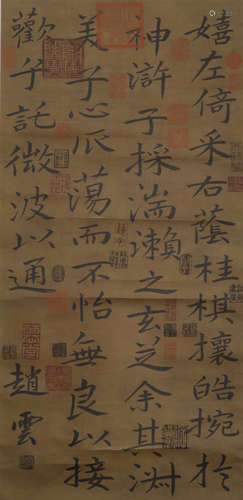 嬉左倚采右蔭桂棋攘皓捥於
神滸兮採湍瀨之玄芝余其淑
美兮心辰蕩而不怡無良以接
歡兮託微波以通
趙雲